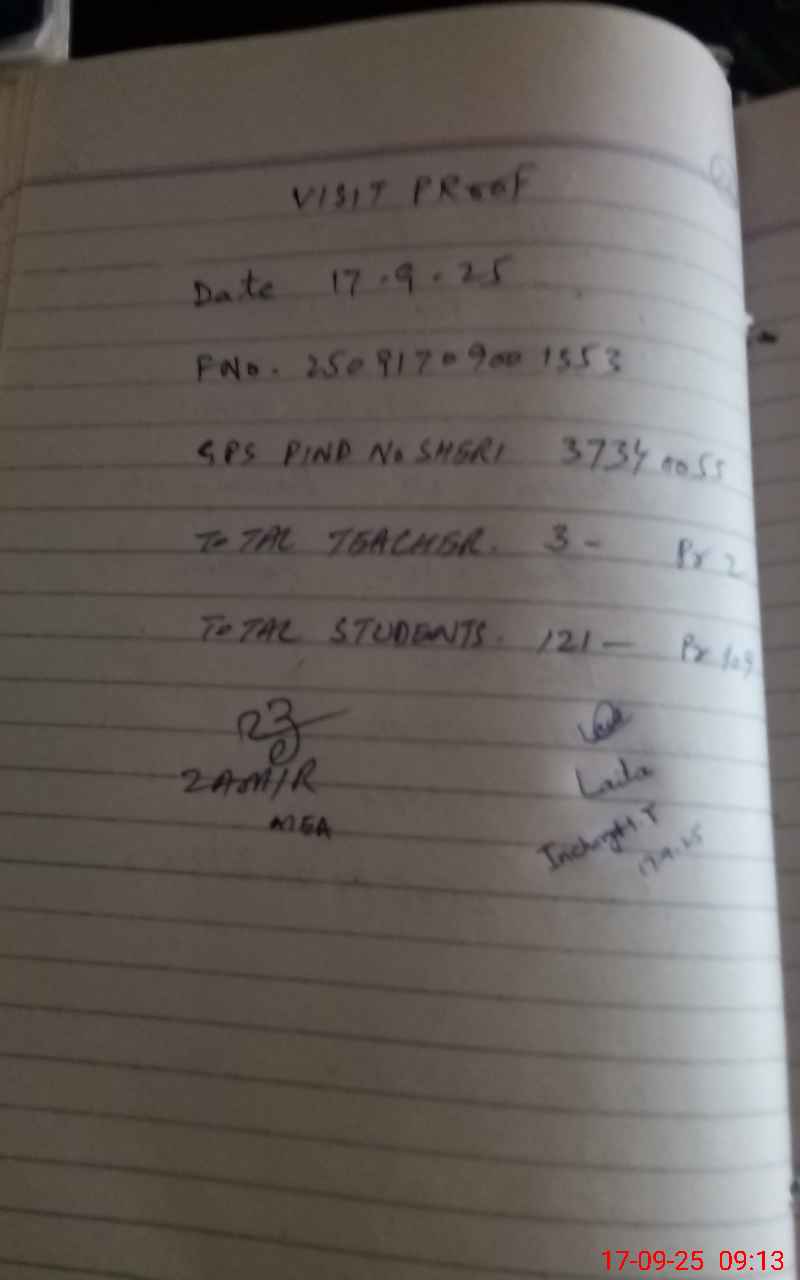 VISIT PROOF
Date 17.9.25
FNO. 2509170900 1553
GPS PIND NOSHERI 37340055
TOTAL TEACHER. 3 - Pr 2
TOTAL STUDENTS. 121 - Pr 109
ZAMIR Laila
MEA Incharge H.T
17.9.25
17-09-25 09:13